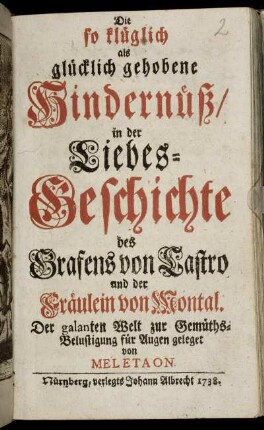 Die
2
so klüglich
als
glücklich gehobene
Hindernüß/
in der
Liebes-
Geschichte
des
Grafens von Castro
und der
Fräulein von Montal.
Der galanten Welt zur Gemüths-
Belustigung für Augen geleget
von
MELETAON.
Nürnberg, verlegts Johann Albrecht 1738.